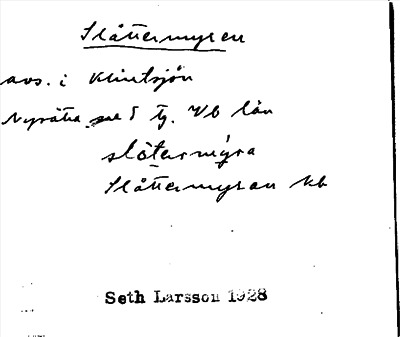 Slåttermyren
avs. i Klintsjön
Nysätra sn Vb län
slåtermýra
Slåttermyran kb
Seth Larsson 1928